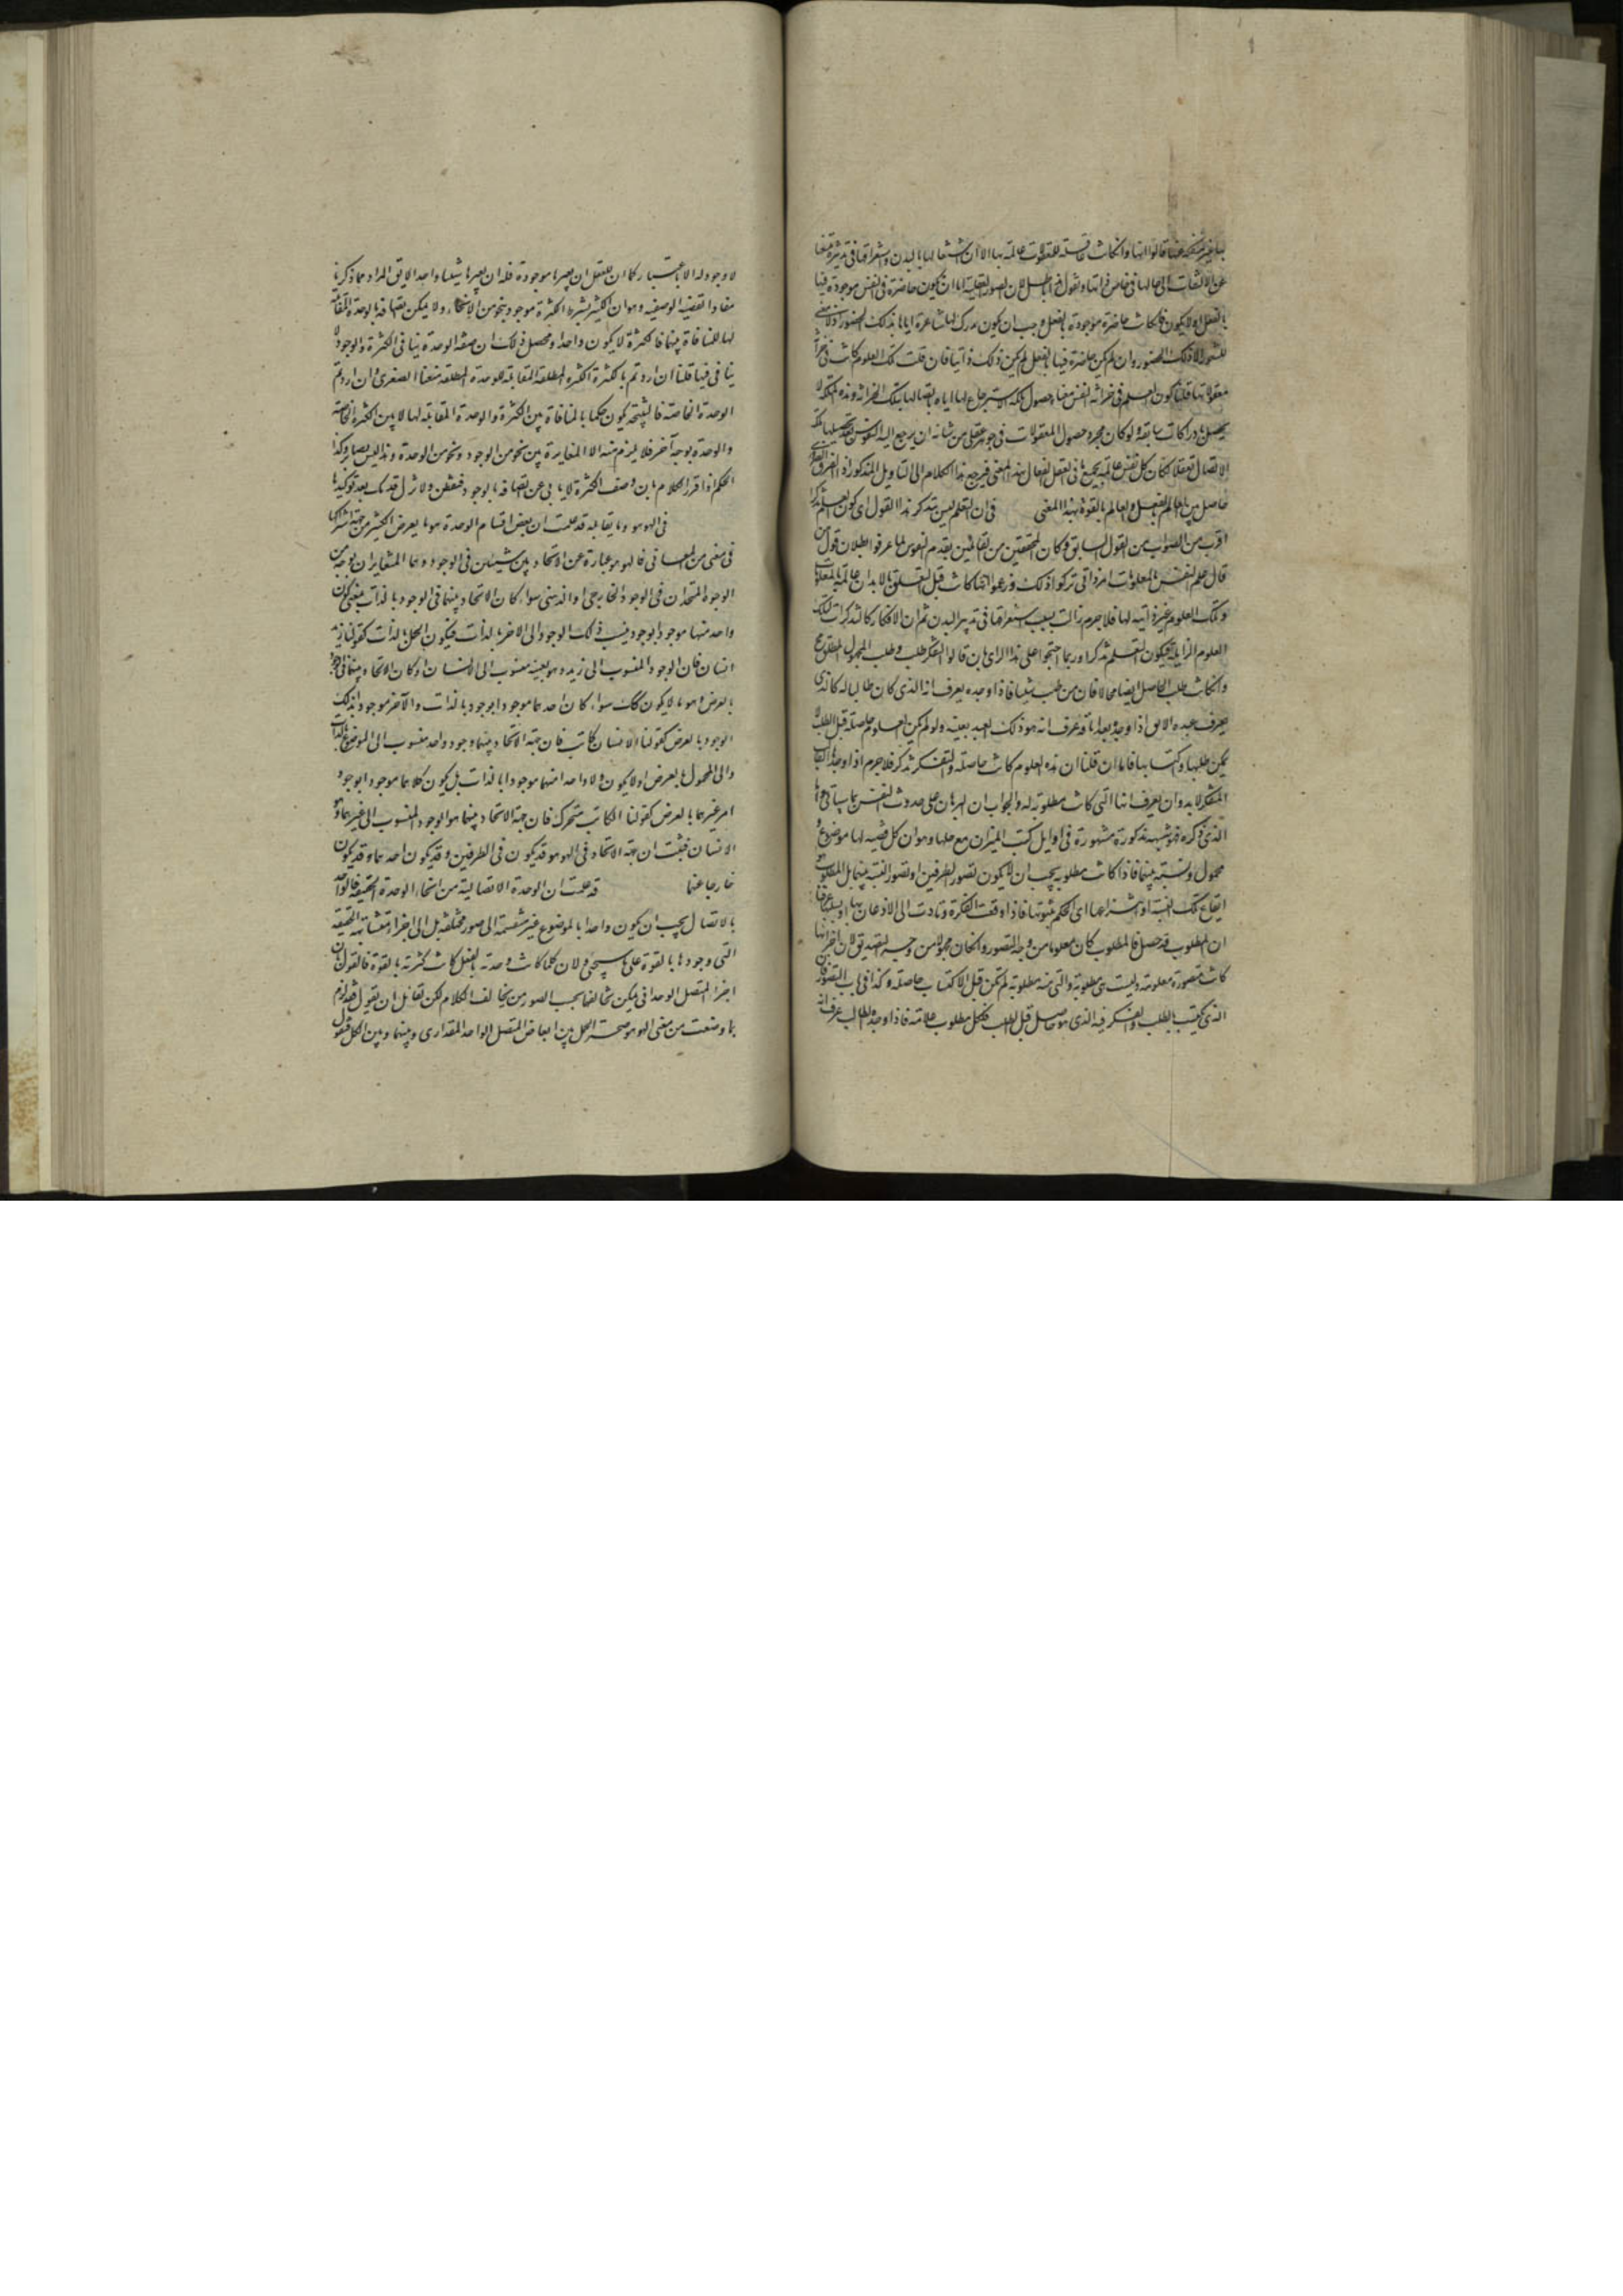 بها غير منفكة عنها قالوا انها وان كانت عاقلة للمعقولات عالمة بها الا ان اشتغالها بالبدن واستغراقها في تدبيره منعها
عن الالتفات الى مالها في خاص ذاتها ونقول هو باطل لان الصور العقلية اما ان تكون حاضرة في النفس موجودة فيها
بالفعل او لا يكون فان كانت حاضرة موجودة بالفعل وجب ان يكون مدركا لها شاعرة اياها بذلك الحضور اذ لا معنى
للشعور الا ذلك الحضور وان لم يكن حاضرة فيها بالفعل لم يكن ذلك ذاتيا فان قلت تلك العلوم كانت في خزانة
معقولاتها قلنا كون العلم في خزانة النفس معناه حصول ملكة الاسترجاع لها اياه باتصالها بتلك الخزانة وهذه الملكة لا
يحصل الا بادراكات سابقة ولو كان مجرد حصول المعقولات في جوهر عقلي من شانه ان يرجع اليه النفوس بتحصيلها ملكة
الاتصال تعقلا لكان كل نفس عالمة بجميع ما في العقل الفعال بهذا المعنى فيرجع هذا الكلام الى التاويل المذكور اذ الفرق
حاصل بين العالم بالفعل والعالم بالقوة بهذا المعنى في ان التعلم ليس بتذكر هذا القول اي كون العلم تذكرا
اقرب من الصواب من القول السابق وكان المحققين من القائلين بقدم النفوس لما عرفوا بطلان قول من
قال علم النفس بالمعلومات امر ذاتي تركوا ذلك وزعموا انها كانت قبل التعلق بالابدان عالمة بالمعلومات
وتلك العلوم غير ذاتية لها فلا جرم زالت بسبب استغراقها في تدبير البدن ثم ان الافكار كالتذكرات لتلك
العلوم الزايلة فيكون التعلم تذكرا وربما احتجوا على هذا الراي بان قالوا التفكر طلب وطلب المجهول المطلق مح
وان كانت طلب الحاصل ايضا محالا فان من طلب شيئا فاذا وجده يعرف انه الذي كان طالبا له كالذي
يعرف عبده الابق اذا وجده بعد اباقه عرف انه هو ذلك العبد بعينه ولو لم يكن العلوم حاصلة قبل الطلب لا
يمكن طلبها واكتسابها فاما ان قلنا ان هذه العلوم كانت حاصلة والتفكر تذكر فلا جرم اذا وجدها
المتفكر لا بد وان يعرف انها التي كانت مطلوبة له والجواب ان البرهان على حدوث النفس مما سياتي واما
الذي ذكره فهو شبهة مذكورة مشهورة في اوايل كتب الميزان مع حلها وهو ان كل قضية لها موضوع و
محمول ونسبة بينهما فاذا كانت مطلوبة يجب ان لا يكون تصور الطرفين او تصور النسبة بينهما بل المطلوب هو
ايقاع تلك النسبة او انتزاعها اي الحكم بثبوتها فاذا وقعت الفكرة وتادت الى الاذعان بها او بسلبها عرفنا
ان المطلوب قد حصل فالمطلوب كان معلوما من وجه التصور وان كان مجهولا من وجه التصديق لان
كانت متصورة معلومة وليست هي مطلوبة والتي منه مطلوبة لم تكن قبل الاكتساب حاصلة وكذا في باب التصور فان
الذي يكتسب بالطلب والفكر فيه الذي هو حاصل قبل الطلب فلكل مطلوب علامة فاذا وجده الطالب عرف انه
لا وجود له الا باعتبار كما ان للعقل ان يعتبرها موجودة فله ان يعتبرها شيئا واحدا لايق المراد مما ذكرنا
مفاد القضية الوصفية وهو ان الكثير بشرط الكثرة موجود بنحو من الانحاء ولا يمكن اتصافه بالوحدة المقابلة
لها للمنافاة بينهما فالكثرة لا يكون واحدا ومحصل ذلك ان صفة الوحدة ينافي الكثرة والوجود لا
ينافي فيها قلنا ان اردتم بالكثرة الكثرة المطلقة المقابلة للوحدة المطلقة منعنا الصغرى وان اردتم
الوحدة الخاصة فالنتيجة يكون حكما بالمنافاة بين الكثرة والوحدة المقابلة لها لا بين الكثرة الخاصة
والوحدة بوجه آخر فلا يلزم منه الا المغايرة بين نحو من الوجود ونحو من الوحدة وهذا ليس بضاير وكذا
الحكم اذا قرر الكلام بان وصف الكثرة لا يابى عن اتصافه بالوجود فتفطن ولا تزل قدمك بعد توكيدها
في الهو هو وما يقابله قد علمت ان بعض اقسام الوحدة هو ما يعرض الكثير من جهة اشتراكها
في معنى من المعاني فالهو هو عبارة عن الاتحاد بين شيئين في الوجود وهما المتغايران بوجه من
الوجوه المتحدان في الوجود الخارجي او الذهني سواء كان الاتحاد بينهما في الوجود بالذات بمعنى كون
واحد منهما موجودا بوجود ينسب ذلك الوجود الى الاخر بالذات فيكون الحمل بالذات كقولنا زيد
انسان فان الوجود المنسوب الى زيد هو بعينه منسوب الى الانسان او كان الاتحاد بينهما في الوجود
بالعرض وهو ما لا يكون كك سواء كان احدهما موجودا بوجود بالذات والآخر موجودا بذلك
الوجود بالعرض كقولنا الانسان كاتب فان جهة الاتحاد بينهما وجود واحد منسوب الى الموضوع بالذات
والى المحمول بالعرض او لا يكون ولا واحد منهما موجودا بالذات بل يكون كلاهما موجودا بوجود
امر غيرهما بالعرض كقولنا الكاتب متحرك فان جهة الاتحاد بينهما هو الوجود المنسوب الى غيرهما وهو
الانسان فثبت ان جهة الاتحاد في الهو هو قد يكون في الطرفين وقد يكون احدهما وقد يكون
خارجا عنهما قد علمت ان الوحدة الاتصالية من انحاء الوحدة الحقيقية فالواحد
بالاتصال يجب ان يكون واحدا بالموضوع غير منقسمة الى صور مختلفة بل الى اجزاء متشابهة الحقيقة
التي وجودها بالقوة على ما سيجئ ولان كلما كانت وحدته بالفعل كانت كثرته بالقوة فالقول بان
اجزاء المتصل الوحداني يمكن تخالفها بحسب الصور من سخايف الكلام لكن لقائل ان يقول فقد لزم
بما وضعت من معنى الهو هو صحة الحمل بين ابعاض المتصل الواحد المقداري وبينها وبين الكل فنقول